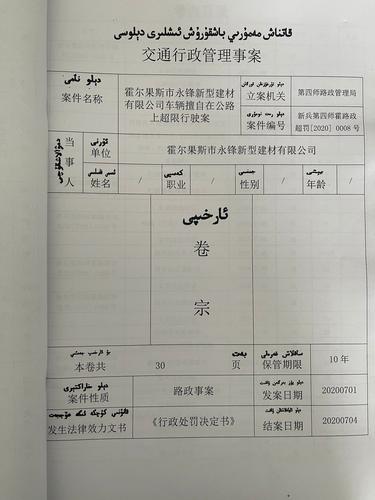 قاتناش مەمۇرىي باشقۇرۇش ئىشلىرى دېلوسى
交通行政管理事案
دېلو نامى
案件名称
霍尔果斯市永锋新型建材
有限公司车辆擅自在公路
上超限行驶案
立案机关
第四师路政管理局
案件编号
新兵第四师霍路政
超罚[2020] 0008号
当事人
ئورنى
单位
霍尔果斯市永锋新型建材有限公司
姓名
/
كەسپى
职业
/
جىنسى
性别
/
يېشى
年龄
/
ئارخىپى
卷
宗
本卷共
30
بەت
页
ساقلاش مۇددىتى
保管期限
10年
案件性质
路政事案
发案日期
20200701
发生法律效力文书
《行政处罚决定书》
结案日期
20200704